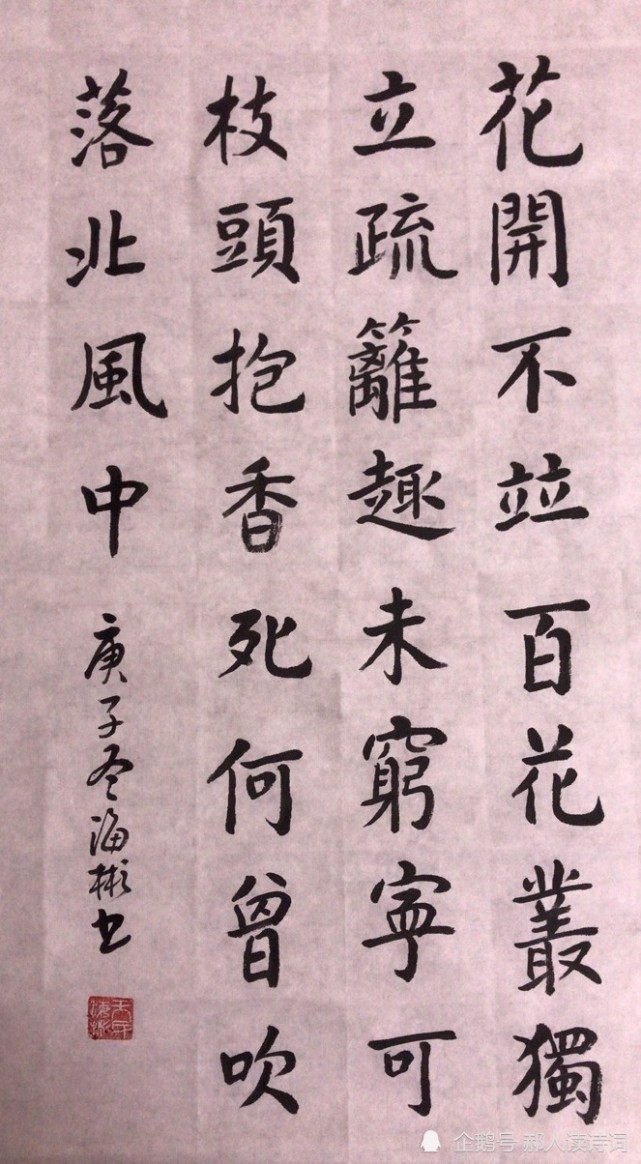 花開不竝百花叢獨
立疏籬趣未窮寧可
枝頭抱香死何曾吹
落北風中
庚子冬海彬书
企鹅号 郝人读诗词